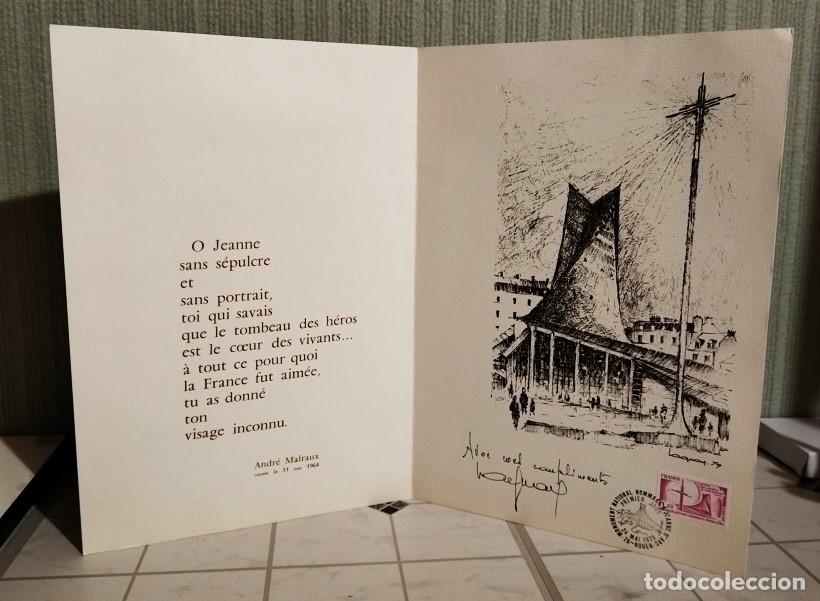 O Jeanne
sans sépulcre
et
sans portrait,
toi qui savais
que le tombeau des héros
est le cœur des vivants...
à tout ce pour quoi
la France fut aimée,
tu as donné
ton
visage inconnu.
André Malraux
rouen le 31 mai 1964
79
Avec mes compliments
FRANCE
MONUMENT NATIONAL HOMMAGE A JEANNE D'ARC
PREMIER JOUR
24 MAI 1979
76-ROUEN
todocoleccion